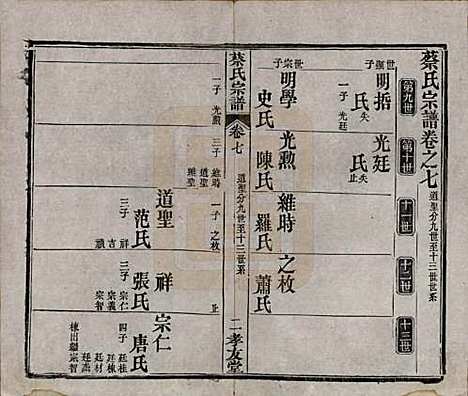 蔡氏宗譜卷之七
道聖分九世至十三世世系
第九世
第十世
十一世
十二世
十三世
世聖子
明括
氏失
一子 光廷
光廷
氏失
止
世宗子
明學
史氏
一子 光勲
光勲
陳氏
三子 維時 道聖
維時
羅氏
一子 之枚
之枚
蕭氏
止
蔡氏宗譜
卷七
道聖分九世至十三世世系
二
孝友堂
道聖
范氏
三子 祥 吉 禎
祥
張氏
三子 宗仁 宗義 宗智
宗仁
唐氏
四子 廷桂 廷棟 廷材
棟出繼宗智